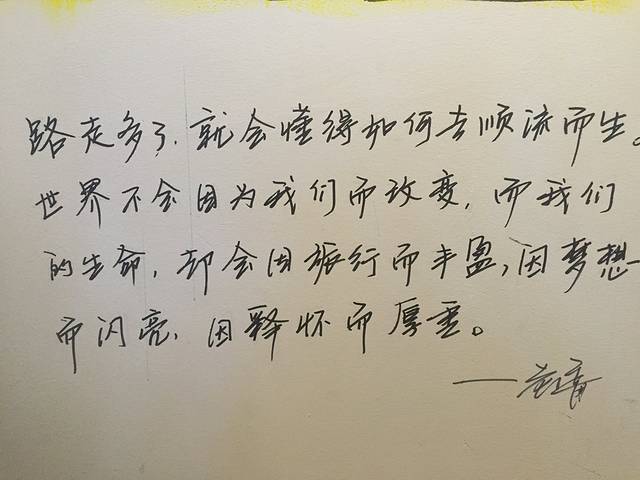 路走多了,就会懂得如何去顺流而生。
世界不会因为我们而改变,而我们
的生命,却会因旅行而丰盈,因梦想
而闪亮,因释怀而厚重。